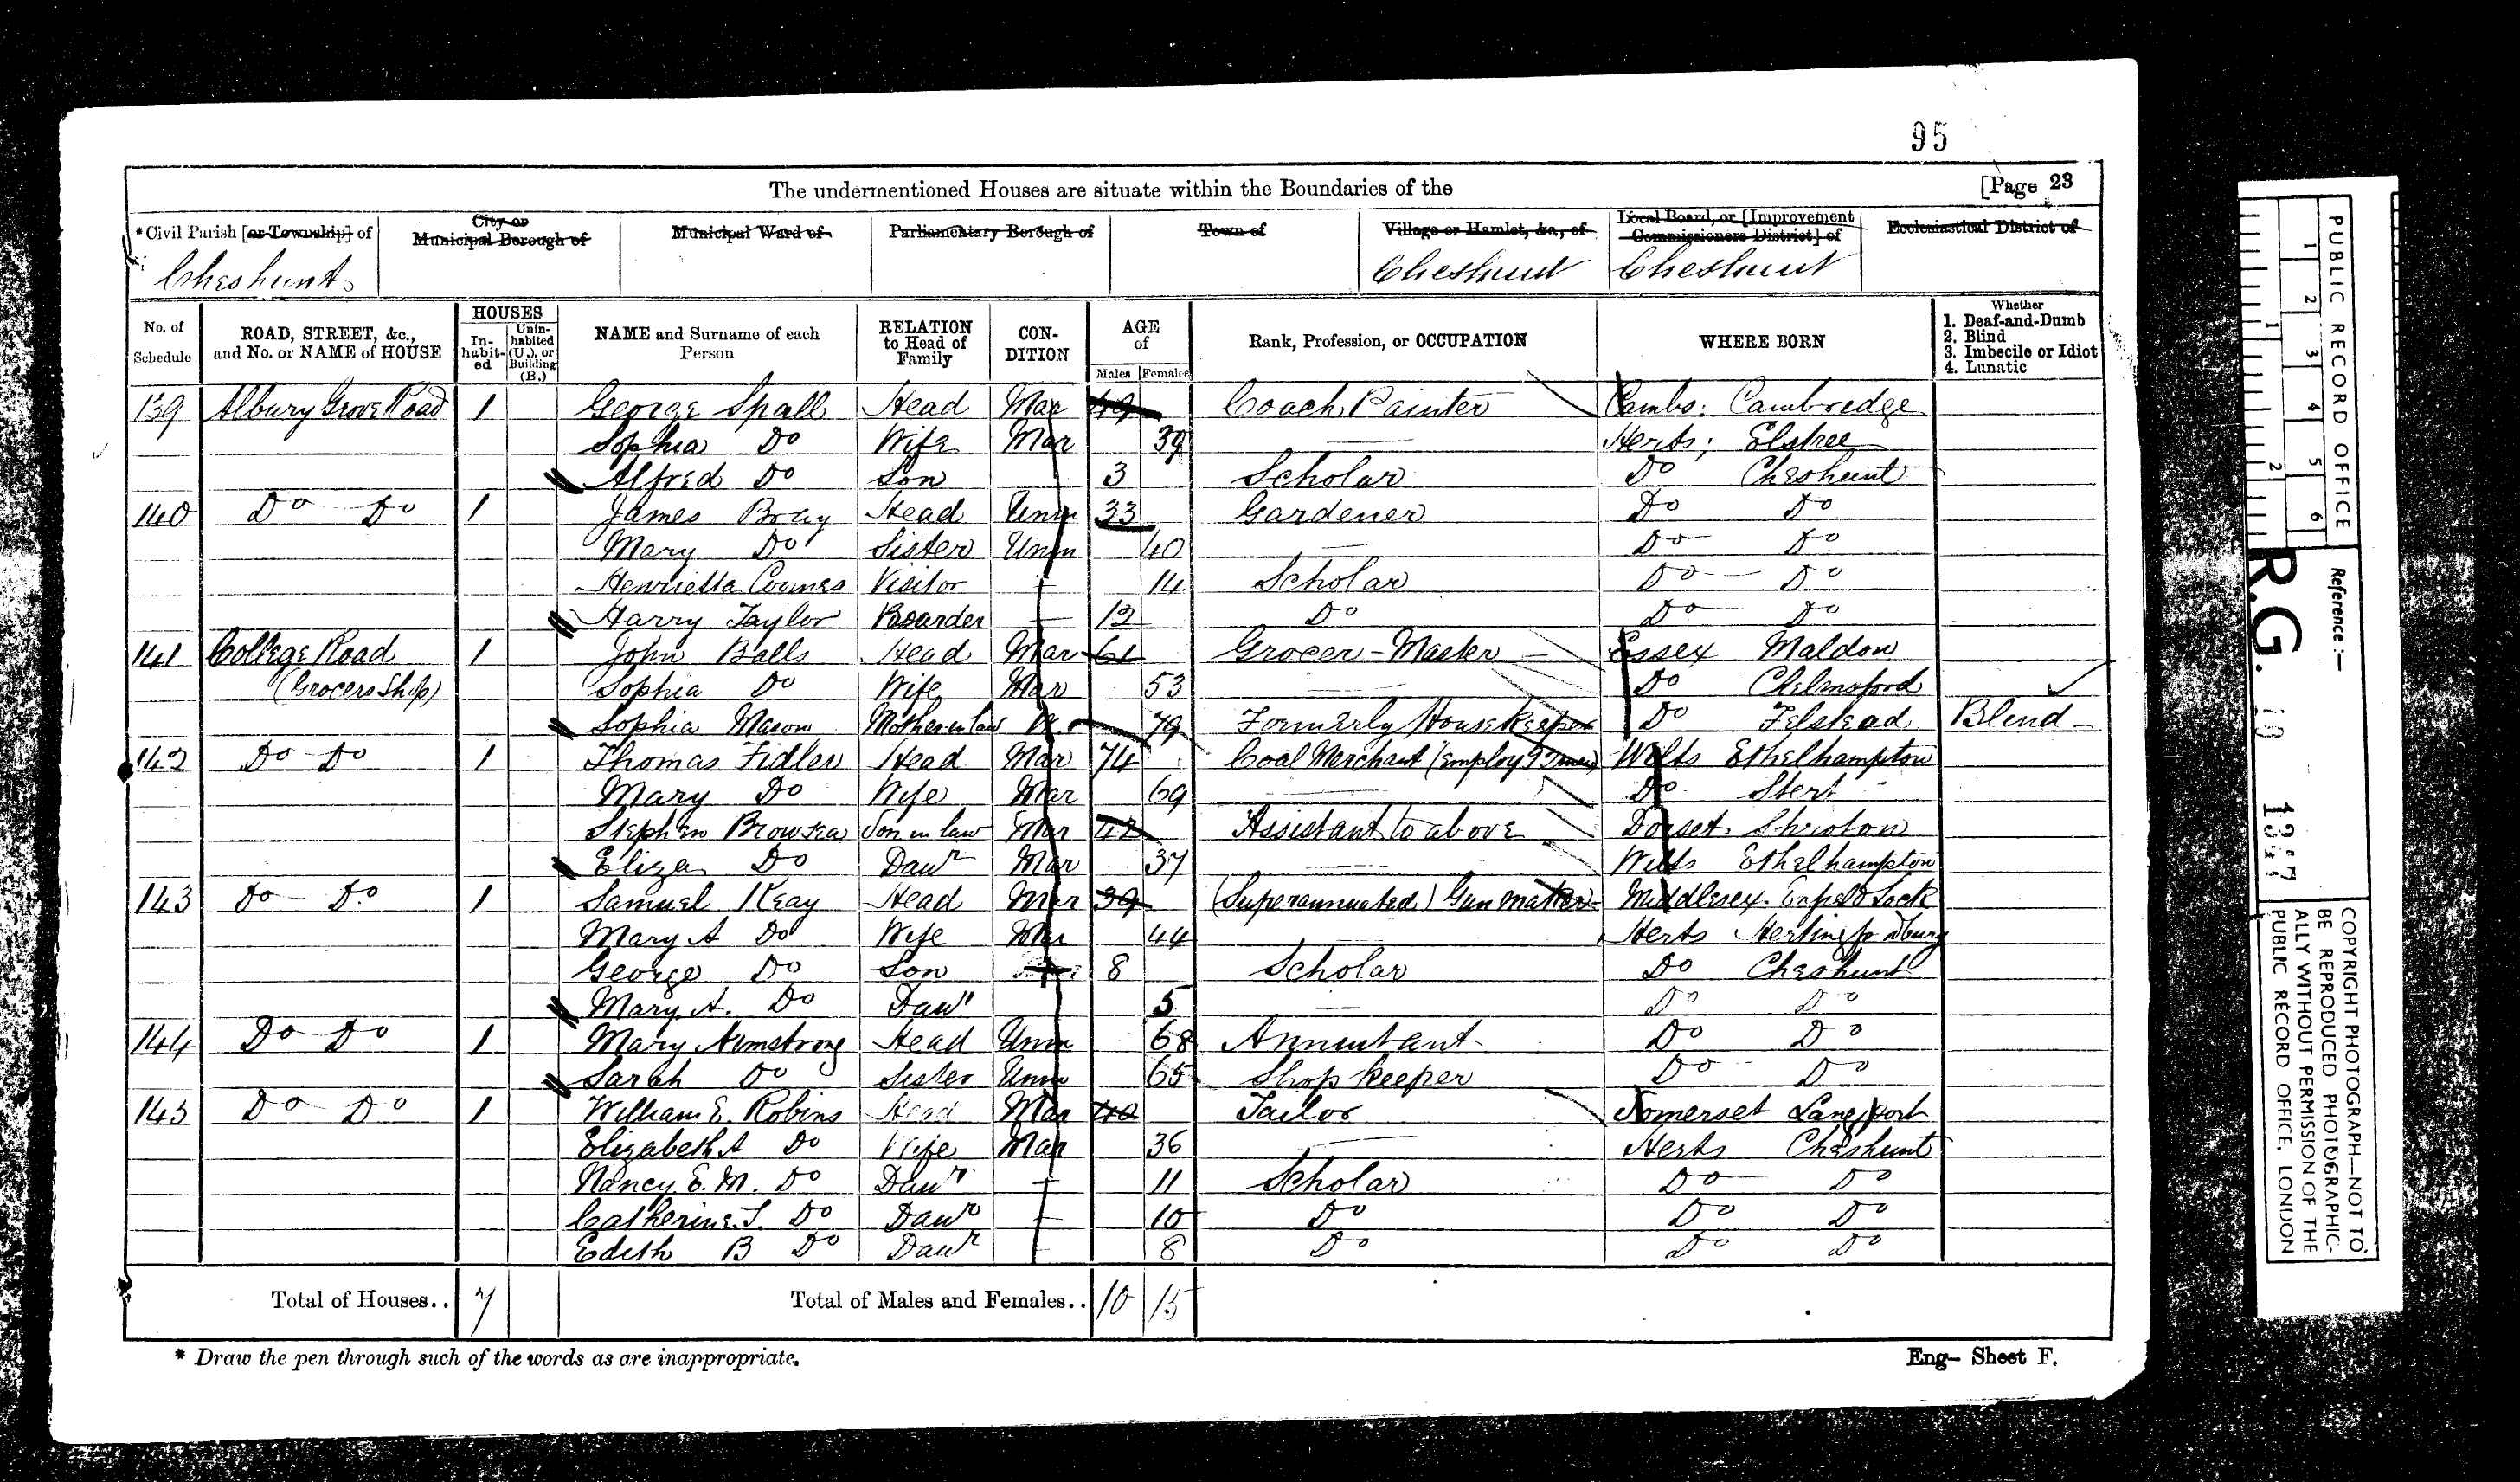 95
The undermentioned Houses are situate within the Boundaries of the [Page 23
*Civil Parish [or Township] of City or Municipal Borough of Municipal Ward of Parliamentary Borough of Town of Village or Hamlet, &c., of Local Board, or [Improvement Commissioners District] of Ecclesiastical District of
Cheshunt Cheshunt Cheshunt
No. of Schedule ROAD, STREET, &c., and No. or NAME of HOUSE HOUSES Inhabited Uninhabited (U.), or Building (B.) NAME and Surname of each Person RELATION to Head of Family CONDITION AGE of Males Females Rank, Profession, or OCCUPATION WHERE BORN Whether 1. Deaf-and-Dumb 2. Blind 3. Imbecile or Idiot 4. Lunatic
139 Albury Grove Road 1 George Spall Head Mar 49 Coach Painter Cambs: Cambredge
Sophia Do Wife Mar 39 Herts; Elstree
Alfred Do Son 3 Scholar Do Cheshunt
140 Do Do 1 James Bray Head Unm 33 Gardener Do Do
Mary Do Sister Unm 40 Do Do
Henrietta Visitor 14 Scholar Do Do
Harry Taylor Boarder 12 Do Do Do
141 College Road 1 John Balls Head Mar 61 Grocer - Master Essex Maldon
(Grocers Shop) Sophia Do Wife Mar 53 Do Chelmsford
Sophia Mason Mother in law 79 Formerly Housekeeper Do Felstead Blind
142 Do Do 1 Thomas Fidler Head Mar 74 Coal Merchant (Employ 9 men) Wilts Ethelhampton
Mary Do Wife Mar 69 Do Stert
Stephen Browsea Son in law Mar 42 Assistant to above Dorset Shroton
Eliza Do Dawr Mar 37 Wilts Ethelhampton
143 Do Do 1 Samuel Keay Head Mar 39 (Superannuated) Gun maker Middlesex. Enfield Lock
Mary A Do Wife Mar 44 Herts Hertingfordbury
George Do Son 8 Scholar Do Cheshunt
Mary. A. Do Dawr 5 Do Do
144 Do Do 1 Mary Armstrong Head Unm 68 Annuitant Do Do
Sarah Do Sister Unm 65 Shop keeper Do Do
145 Do Do 1 William E. Robins Head Mar 40 Tailor Somerset Langport
Elizabeth A Do Wife Mar 36 Herts Cheshunt
Nancy E. M. Do Dawr 11 Scholar Do Do
Catherine. J. Do Dawr 10 Do Do Do
Edith B Do Dawr 8 Do Do Do
Total of Houses.. 7 Total of Males and Females.. 10 15
* Draw the pen through such of the words as are inappropriate.
Eng- Sheet F.
PUBLIC RECORD OFFICE
1 2 3 4 5 6
1 2
Reference:-
R.G. 10
COPYRIGHT PHOTOGRAPH—NOT TO
BE REPRODUCED PHOTOGRAPHIC-
ALLY WITHOUT PERMISSION OF THE
PUBLIC RECORD OFFICE, LONDON